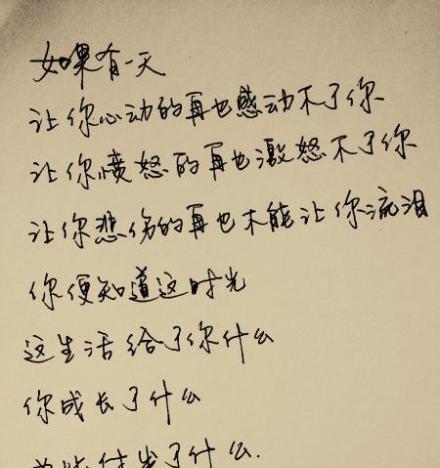 如果有一天
让你心动的再也感动不了你
让你愤怒的再也激怒不了你
让你悲伤的再也不能让你流泪
你便知道这时光
这生活给了你什么
你成长了什么
付出了什么.